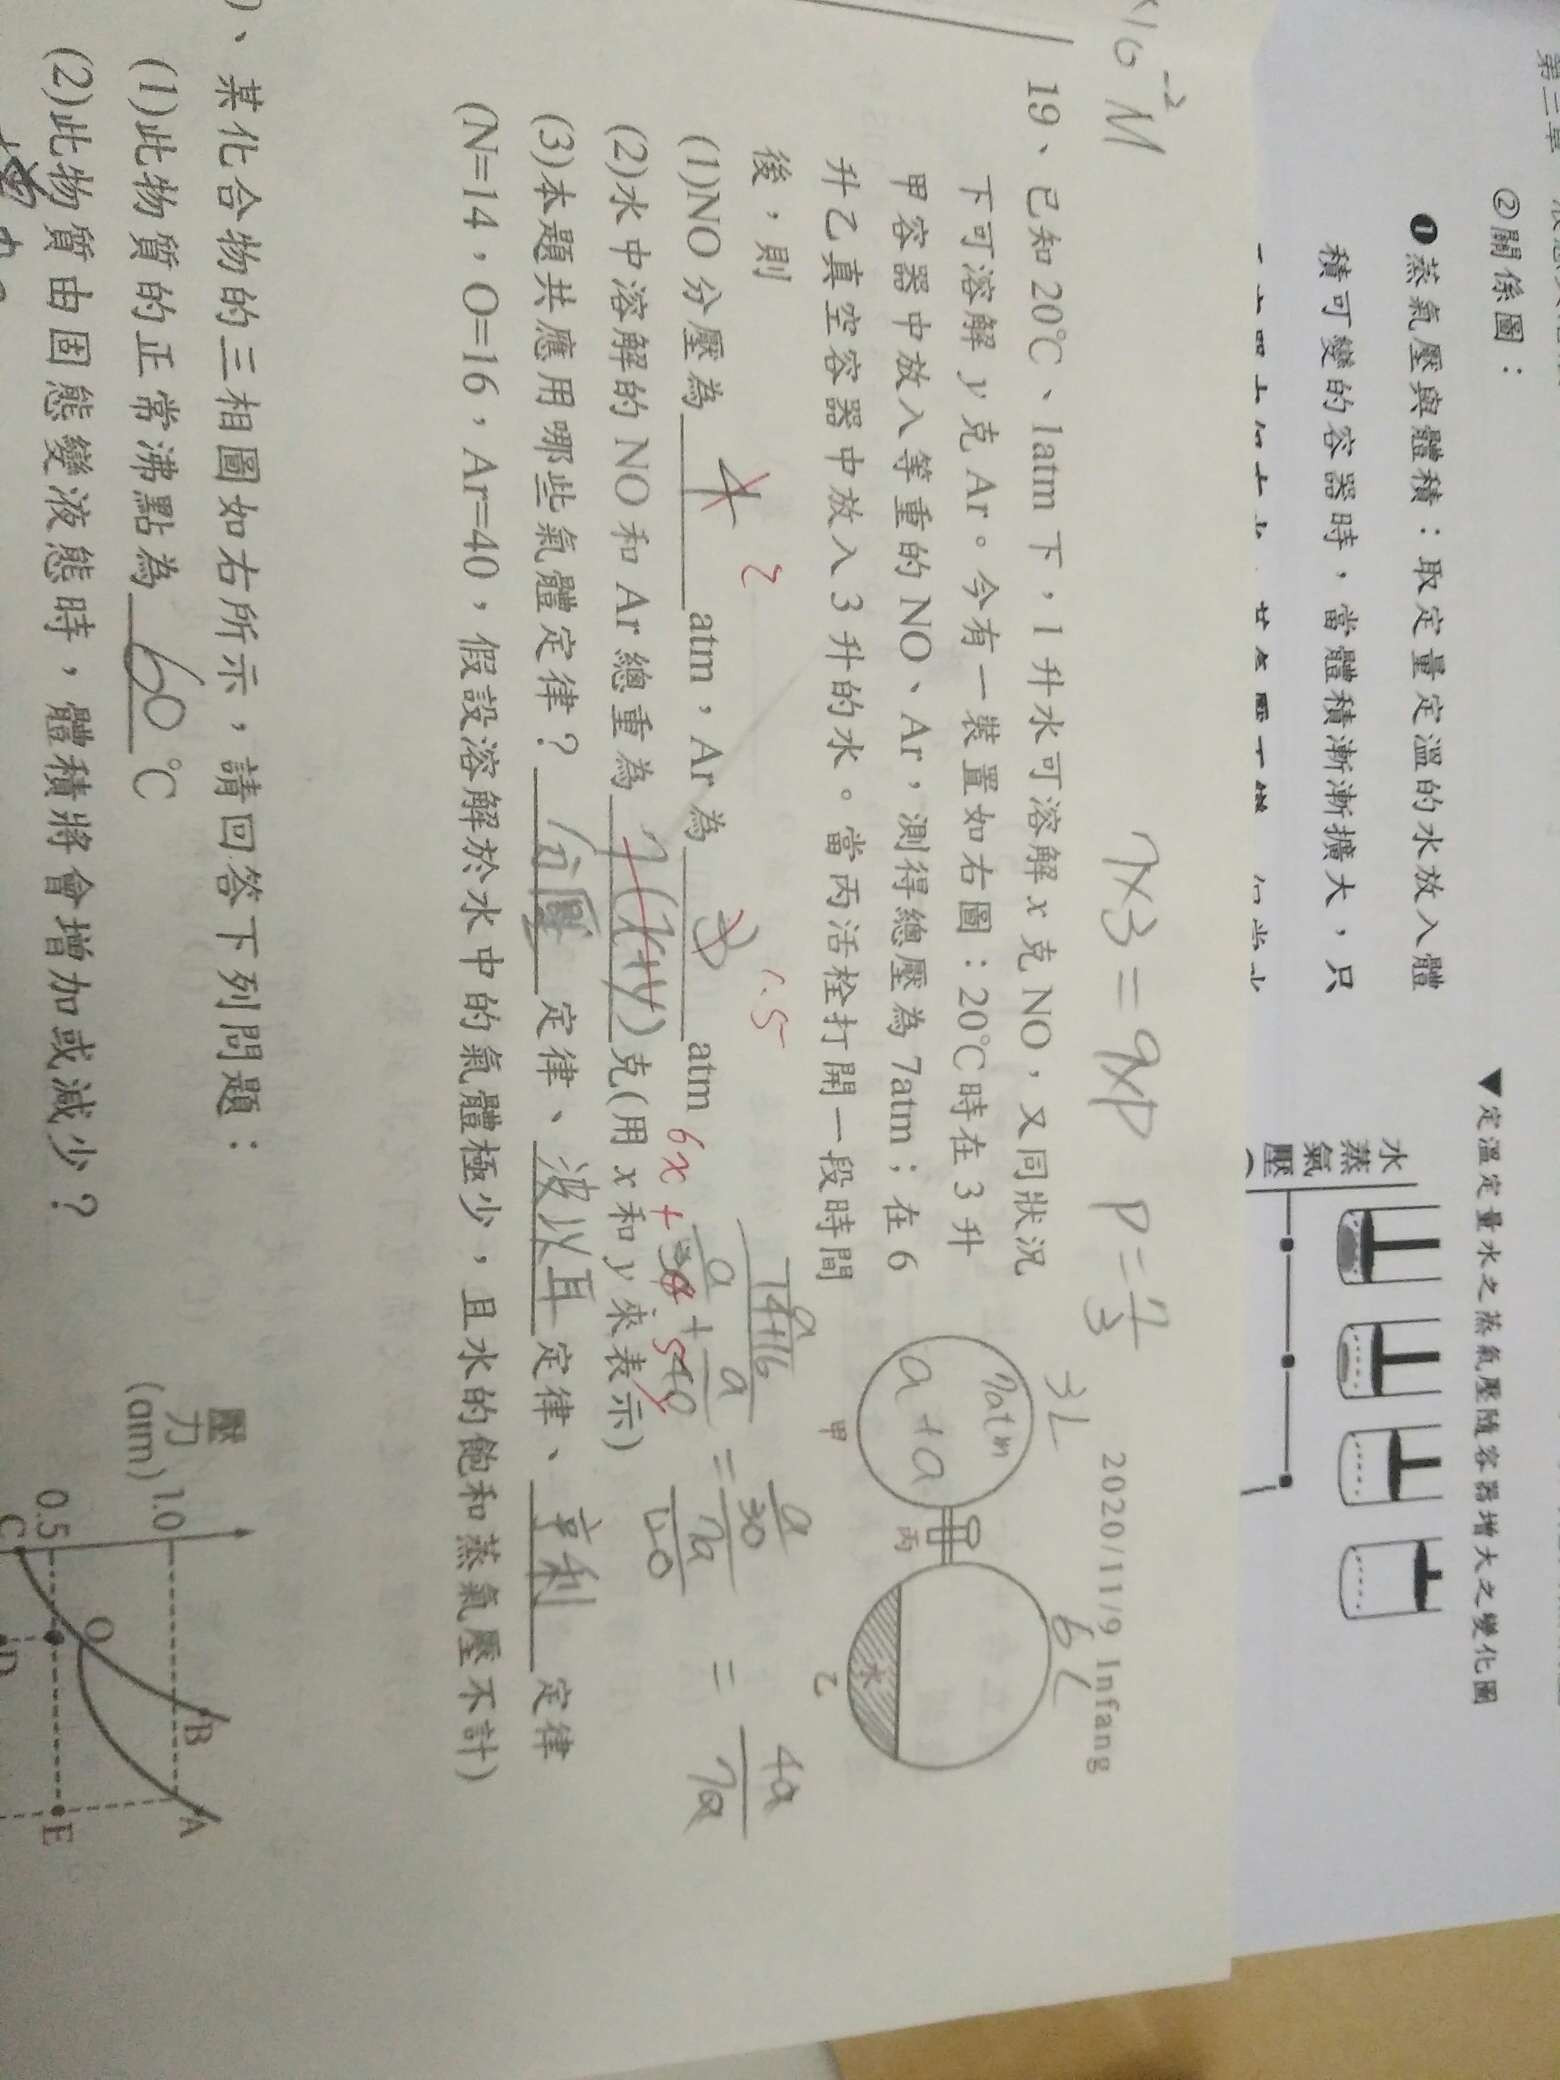 ②關係圖：
❶蒸氣壓與體積：取定量定溫的水放入體
積可變的容器時，當體積漸漸擴大，只
▼定溫定量水之蒸氣壓隨容器增大之變化圖
水蒸氣壓
2020/11/9 Infang
×10⁻² M
7×3=9×P P=7/3
19、已知 20℃、1atm 下，1 升水可溶解 x 克 NO，又同狀況
下可溶解 y 克 Ar。今有一裝置如右圖：20℃時在 3 升
甲容器中放入等重的 NO、Ar，測得總壓為 7atm；在 6
升乙真空容器中放入 3 升的水。當丙活栓打開一段時間
後，則
3L
7atm
a+a
甲
丙
6L
水
乙
2
1.5
(1)NO 分壓為 4 atm，Ar 為 3 atm
6x+
(2)水中溶解的 NO 和 Ar 總重為 7(x+y) 克(用 x 和 y 來表示)
(3)本題共應用哪些氣體定律？ 分壓 定律、 波以耳 定律、 亨利 定律
(N=14，O=16，Ar=40，假設溶解於水中的氣體極少，且水的飽和蒸氣壓不計)
a/14+16
a/30
4a/7a
、某化合物的三相圖如右所示，請回答下列問題：
(1)此物質的正常沸點為 60 ℃
(2)此物質由固態變液態時，體積將會增加或減少？
壓力
(am)
1.0
0.5
C
O
B
A
D
E